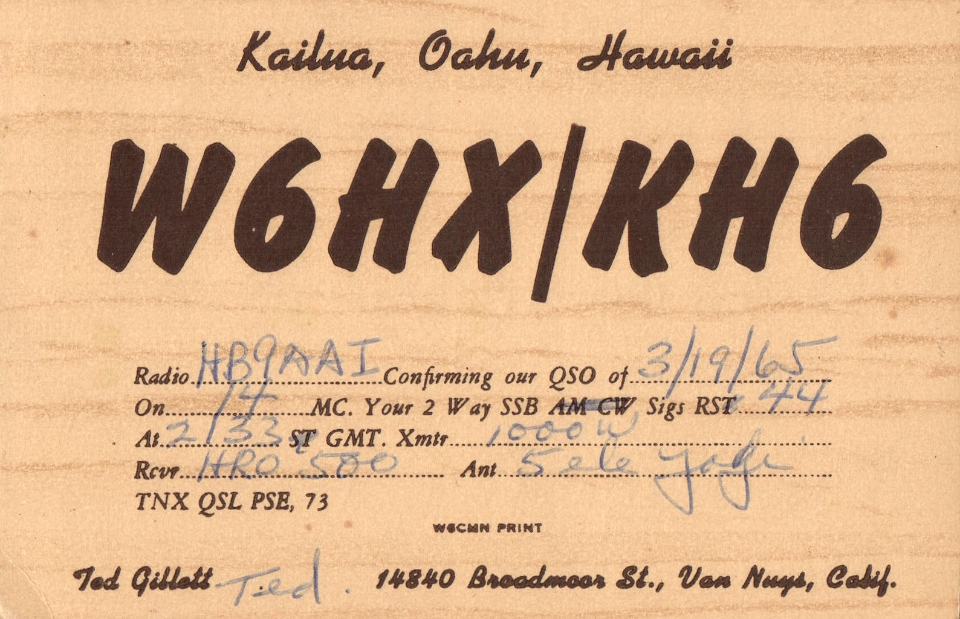 Kailua, Oahu, Hawaii
W6HX/KH6
Radio HB9AAI Confirming our QSO of 3/19/65
On 14 MC. Your 2 Way SSB AM CW Sigs RST 44
At 2133 ST GMT. Xmtr 1000W
Rcvr HRO 500 Ant 5 ele yagi
TNX QSL PSE, 73
W6CMN PRINT
Ted Gillett Ted. 14840 Broadmoor St., Van Nuys, Calif.